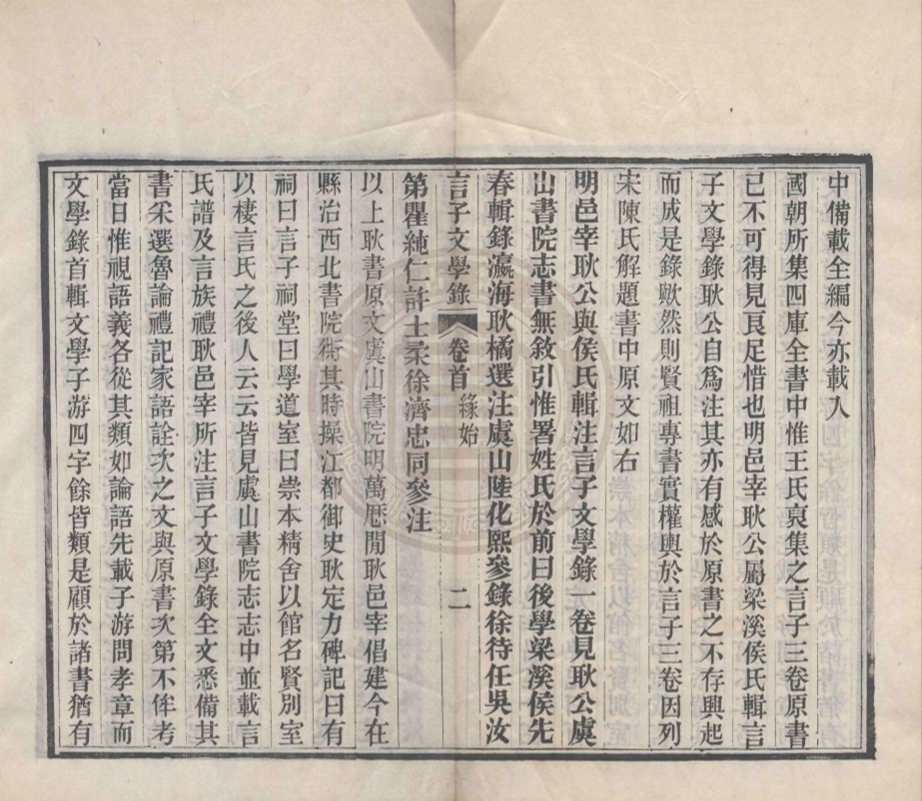 中備載全編今亦載入
國朝所集四庫全書中惟王氏裒集之言子三卷原書
已不可得見良足惜也明邑宰耿公屬梁溪侯氏輯言
子文學錄耿公自爲注其亦有感於原書之不存興起
而成是錄歟然則賢祖專書實權輿於言子三卷因列
宋陳氏解題書中原文如右
明邑宰耿公與侯氏輯注言子文學錄一卷見耿公虞
山書院志書無敘引惟署姓氏於前曰後學梁溪侯先
春輯錄瀛海耿橘選注虞山陸化熙參錄徐待任吳汝
言子文學錄 卷首 緣始 二
第瞿純仁許士柔徐濟忠同參注
以上耿書原文虞山書院明萬厯閒耿邑宰倡建今在
縣治西北書院衖其時操江都御史耿定力碑記曰有
祠曰言子祠堂曰學道室曰崇本精舍以館名賢別室
以棲言氏之後人云云皆見虞山書院志志中並載言
氏譜及言族禮耿邑宰所注言子文學錄全文悉備其
書采選魯論禮記家語詮次之文與原書次第不侔考
當日惟視語義各從其類如論語先載子游問孝章而
文學錄首輯文學子游四字餘皆類是顧於諸書猶有